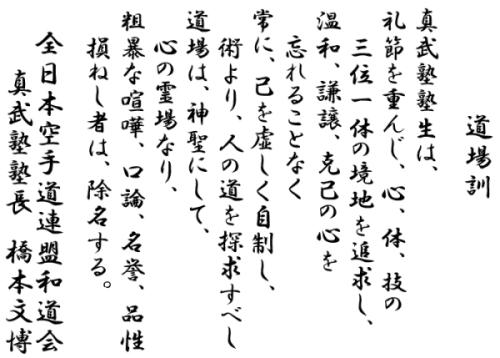 道場訓
真武塾塾生は、
礼節を重んじ、心、体、技の
三位一体の境地を追求し、
温和、謙譲、克己の心を
忘れることなく
常に、己を虚しく自制し、
術より、人の道を探求すべし
道場は、神聖にして、
心の霊場なり、
粗暴な喧嘩、口論、名誉、品性
損ねし者は、除名する。
全日本空手道連盟和道会
真武塾塾長 橋本文博